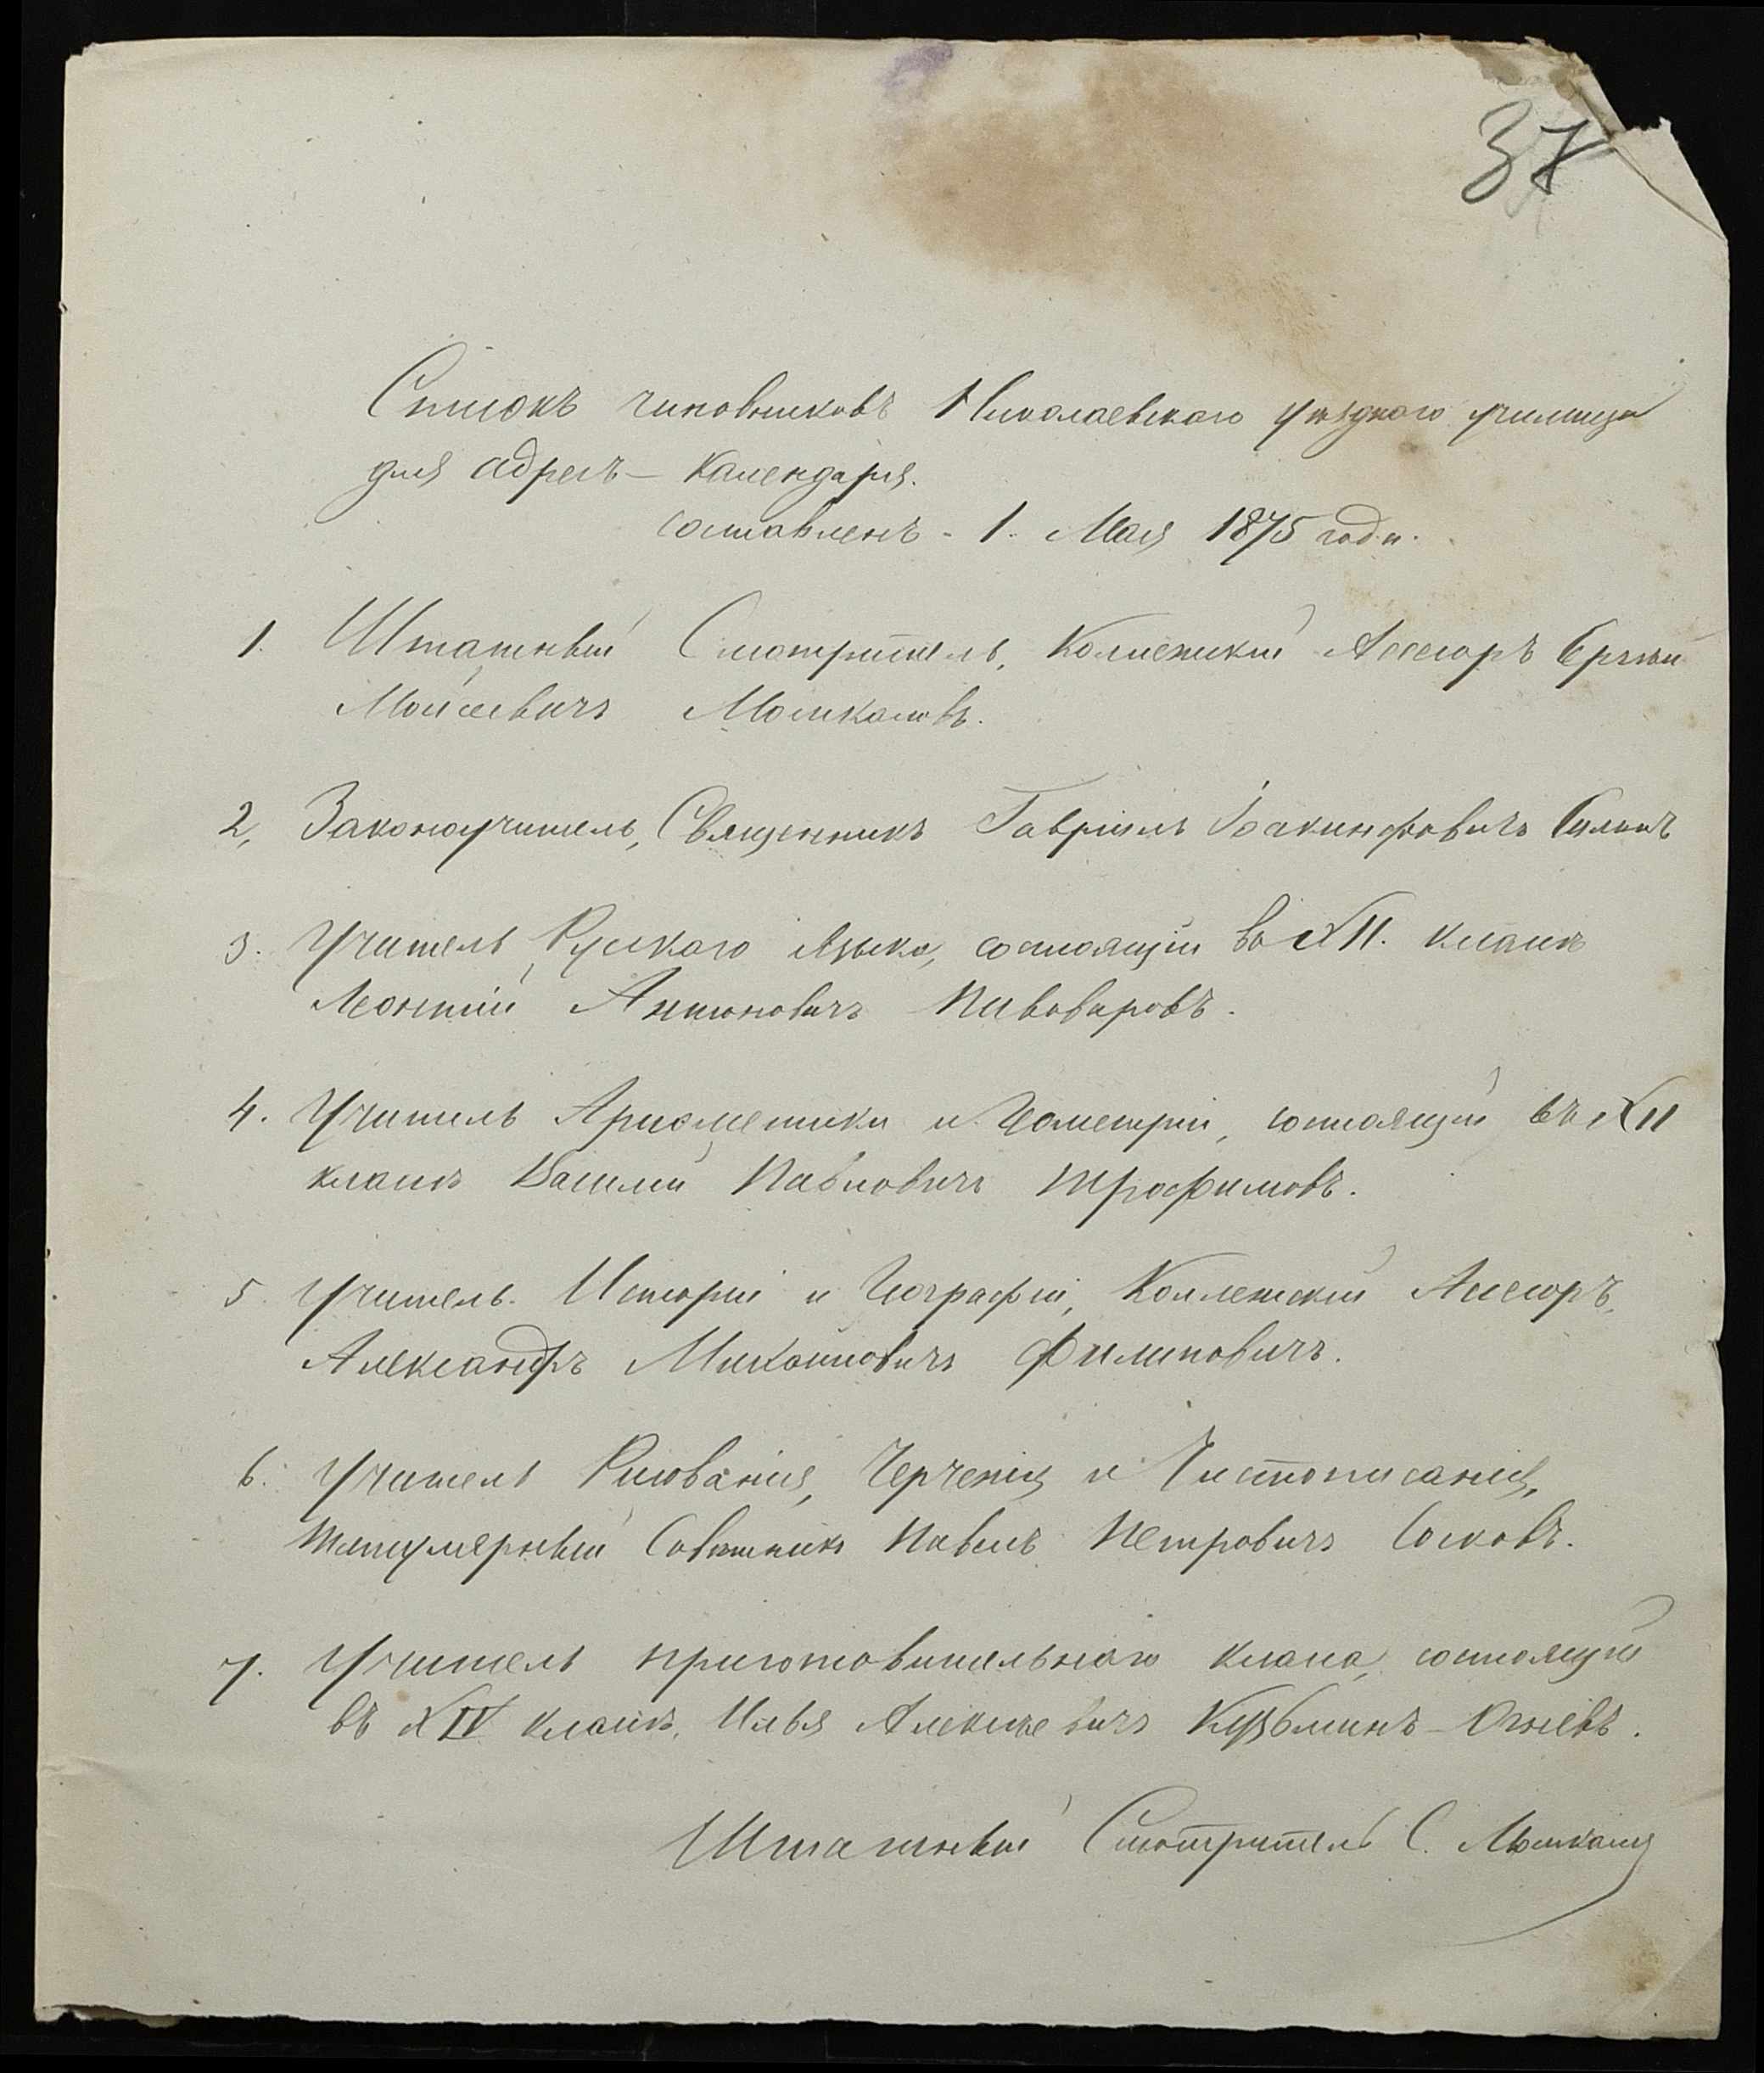 37
Списокъ чиновниковъ Николаевскаго уѣзднаго училища
для адресъ-календаря.
Составленъ - 1. Мая 1875 года.
1. Штатный Смотритель, Коллежскій Ассесоръ Сергѣй
Моисеевичъ
2, Законоучитель, Священникъ Гавріилъ Іоакинфовичъ
3. Учитель Русскаго языка, состоящій въ XII. классѣ
Леонтій Антоновичъ Пивоваровъ.
4. Учитель Ариѳметики и Геометріи, состоящій въ XII
классѣ Василій Павловичъ Трофимовъ.
5. Учитель Исторіи и Географіи, Коллежскій Ассесоръ,
Александръ Михайловичъ Филиповичъ.
6. Учитель Рисованія, Черченія и Чистописанія,
Титулярный Совѣтникъ Павелъ Петровичъ Сосковъ.
7. Учитель приготовительнаго класса, состоящій
въ XIV классѣ, Илья Алексѣевичъ Кузьминъ-Огневъ.
Штатный Смотритель С.